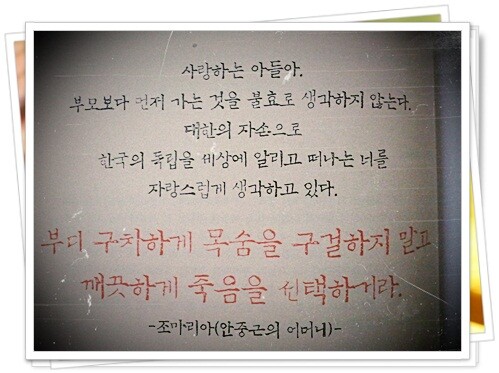 사랑하는 아들아.
부모보다 먼저 가는 것을 불효로 생각하지 않는다.
대한의 자손으로
한국의 독립을 세상에 알리고 떠나는 너를
자랑스럽게 생각하고 있다.
부디 구차하게 목숨을 구걸하지 말고
깨끗하게 죽음을 선택하거라.
-조마리아(안중근의 어머니)-